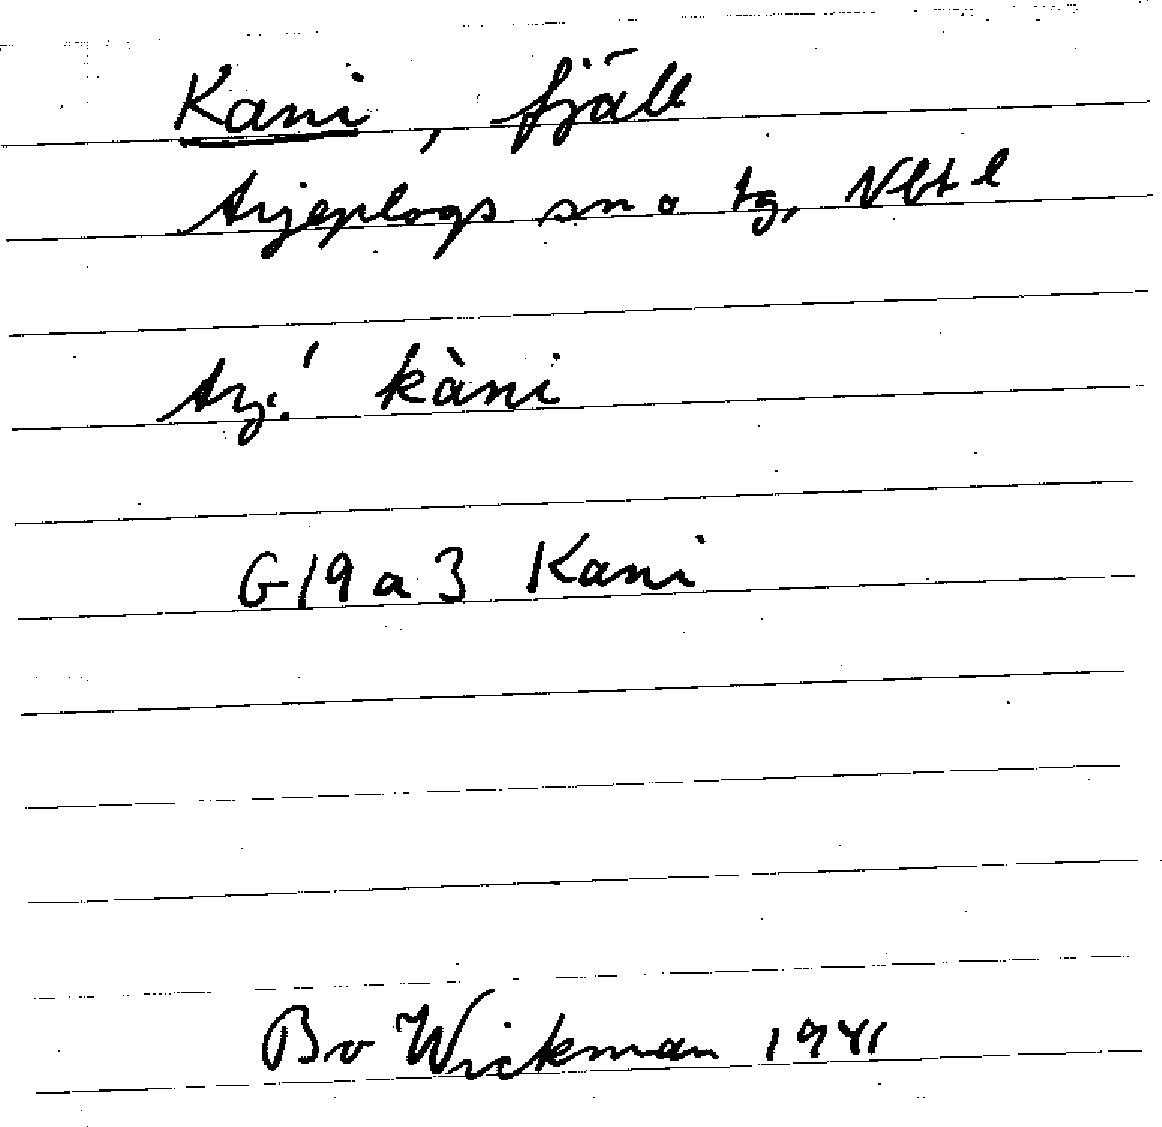 Kani, fjäll
Arjeplogs sn o tg, Nbt l
Arj.! kàni
G19a3 Kani
Bo Wickman 1941